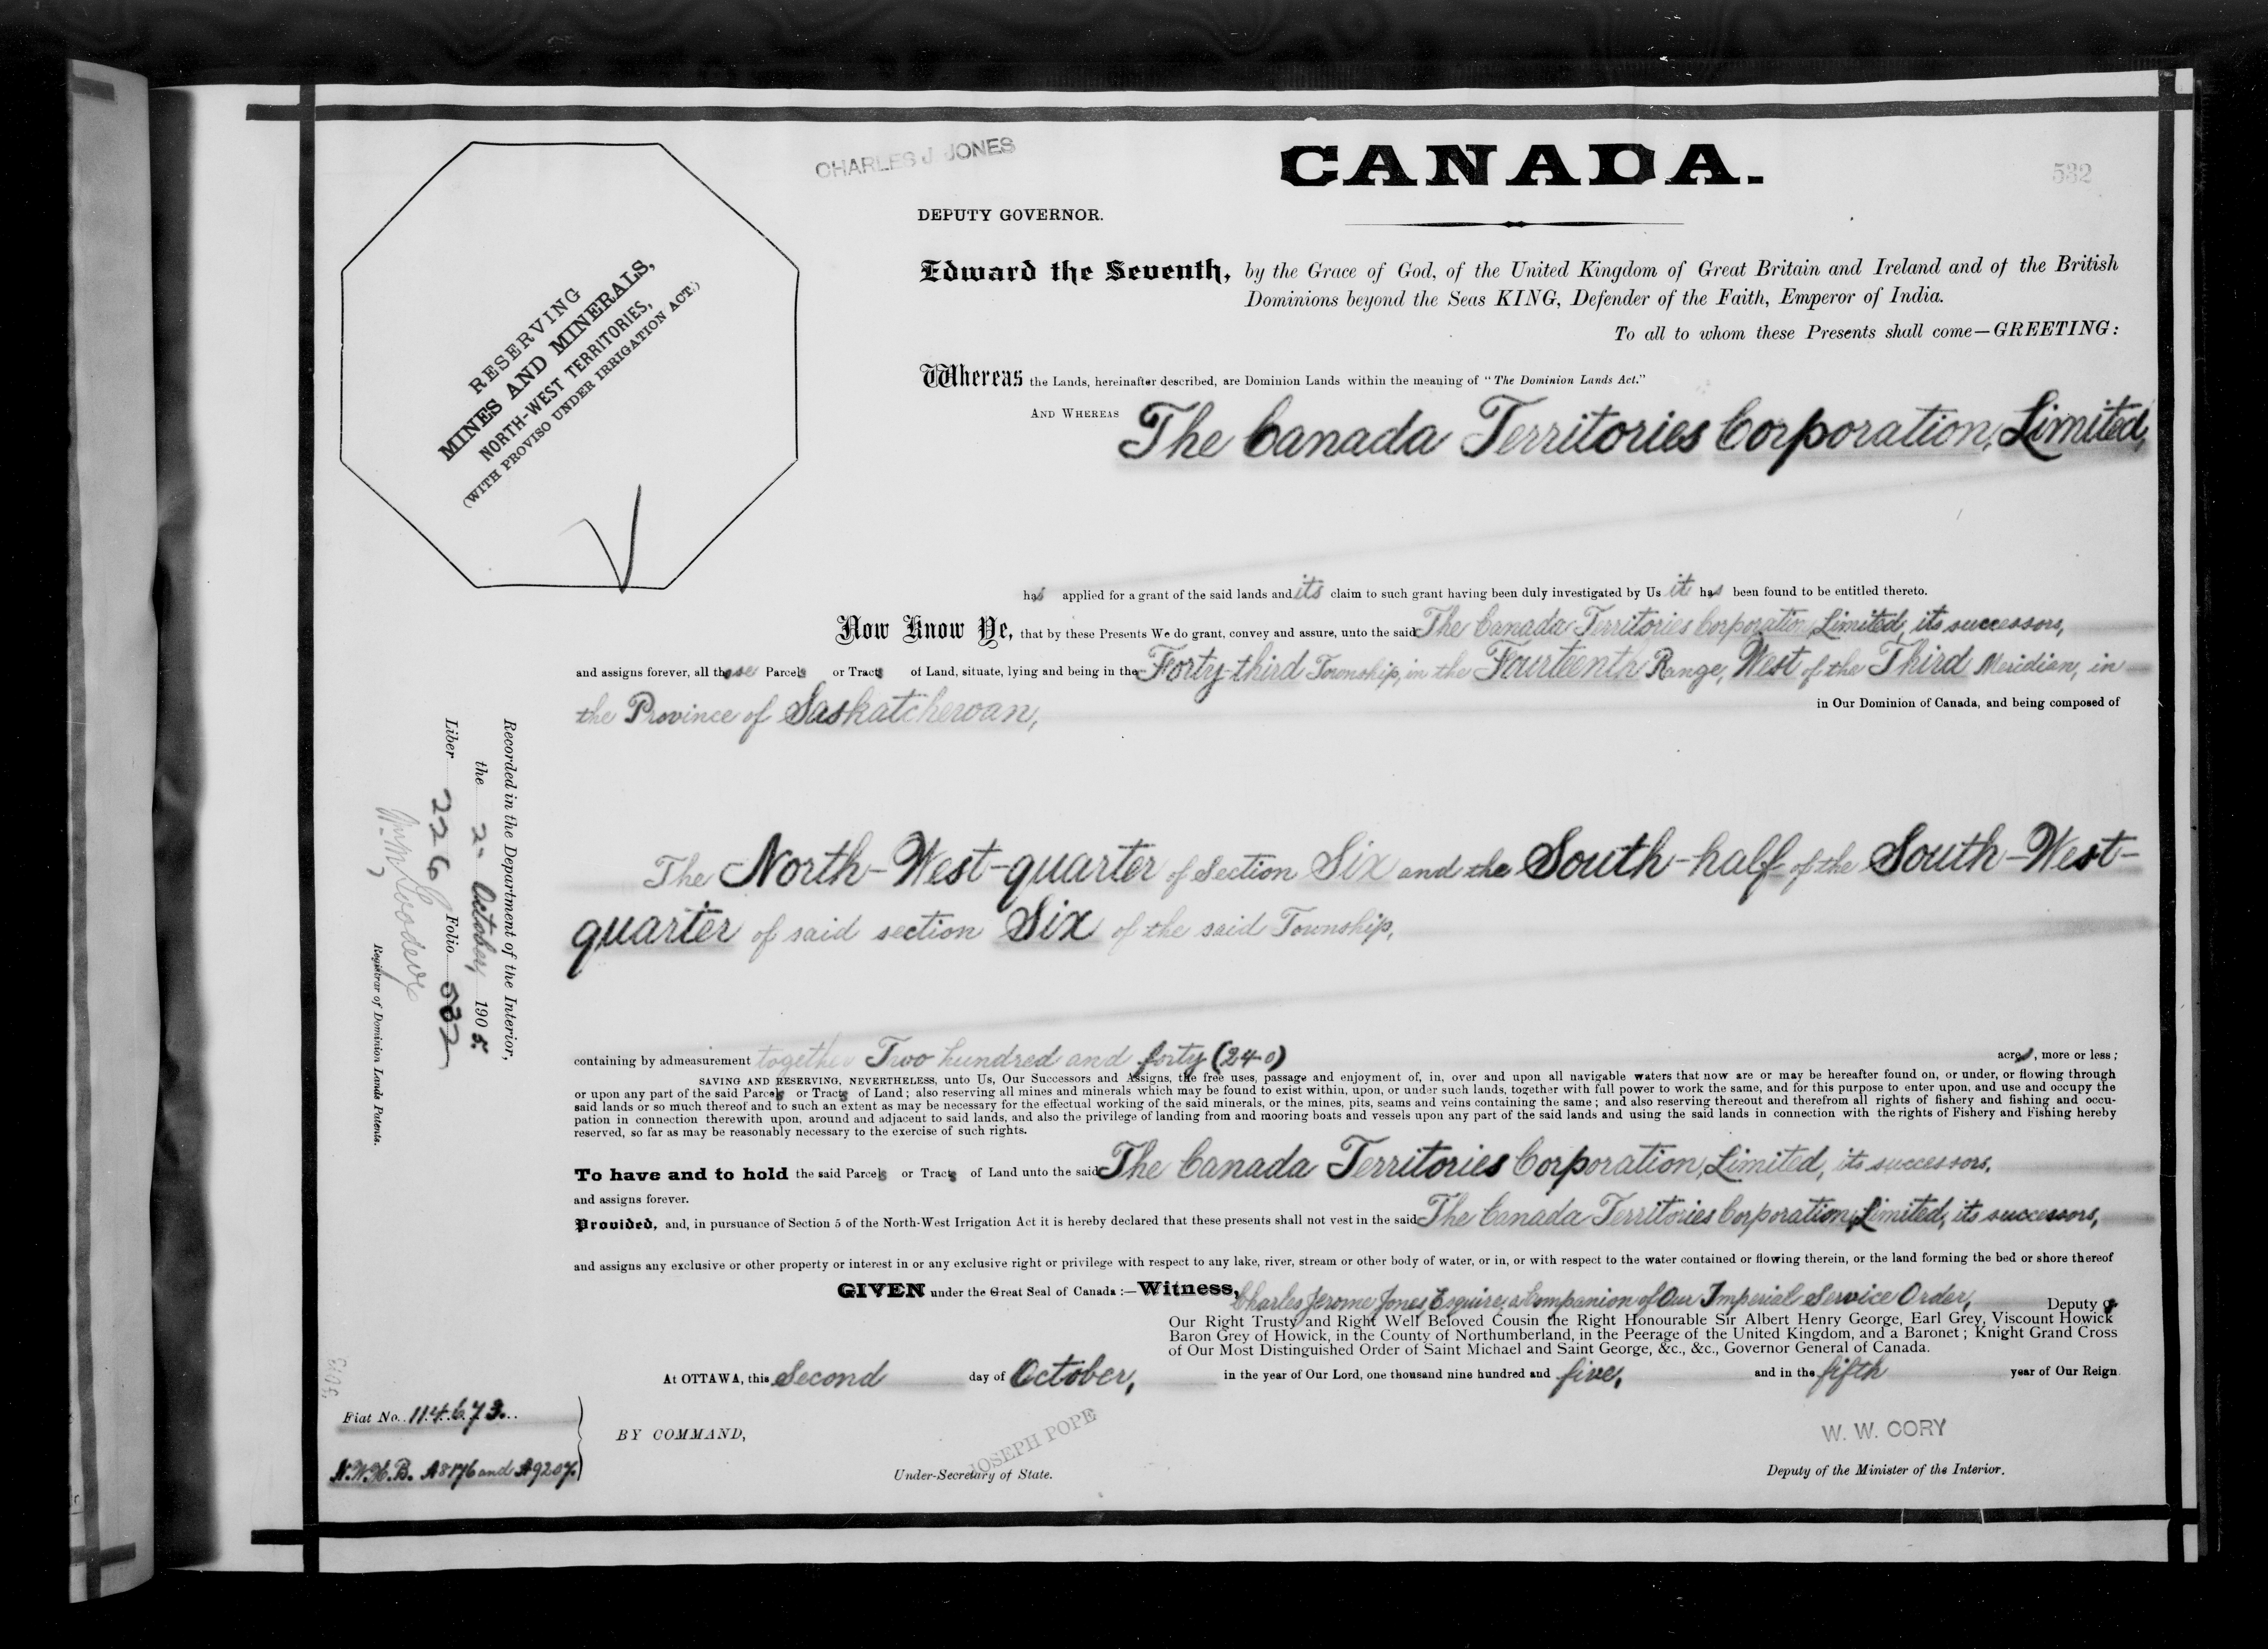 CHARLES J. JONES
CANADA.
532
DEPUTY GOVERNOR.
RESERVING
MINES AND MINERALS,
NORTH-WEST TERRITORIES,
(WITH PROVISO UNDER IRRIGATION ACT.)
Edward the Seventh, by the Grace of God, of the United Kingdom of Great Britain and Ireland and of the British
Dominions beyond the Seas KING, Defender of the Faith, Emperor of India.
To all to whom these Presents shall come—GREETING:
Whereas the Lands, hereinafter described, are Dominion Lands within the meaning of "The Dominion Lands Act."
AND WHEREAS The Canada Territories Corporation, Limited,
has applied for a grant of the said lands and its claim to such grant having been duly investigated by Us it has been found to be entitled thereto.
Now Know Ye, that by these Presents We do grant, convey and assure, unto the said The Canada Territories Corporation, Limited, its successors,
and assigns forever, all those Parcels or Tracts of Land, situate, lying and being in the Forty-third Township, in the Fourteenth Range, West of the Third Meridian, in
the Province of Saskatchewan, in Our Dominion of Canada, and being composed of
The North-West-quarter of Section Six and the South-half of the South-West-
quarter of said section Six of the said Township,
containing by admeasurement together Two hundred and forty (240) acres, more or less;
SAVING AND RESERVING, NEVERTHELESS, unto Us, Our Successors and Assigns, the free uses, passage and enjoyment of, in, over and upon all navigable waters that now are or may be hereafter found on, or under, or flowing through
or upon any part of the said Parcels or Tracts of Land; also reserving all mines and minerals which may be found to exist within, upon, or under such lands, together with full power to work the same, and for this purpose to enter upon, and use and occupy the
said lands or so much thereof and to such an extent as may be necessary for the effectual working of the said minerals, or the mines, pits, seams and veins containing the same; and also reserving thereout and therefrom all rights of fishery and fishing and occu-
pation in connection therewith upon, around and adjacent to said lands, and also the privilege of landing from and mooring boats and vessels upon any part of the said lands and using the said lands in connection with the rights of Fishery and Fishing hereby
reserved, so far as may be reasonably necessary to the exercise of such rights.
To have and to hold the said Parcels or Tracts of Land unto the said The Canada Territories Corporation, Limited, its successors,
and assigns forever.
Provided, and, in pursuance of Section 5 of the North-West Irrigation Act it is hereby declared that these presents shall not vest in the said The Canada Territories Corporation, Limited, its successors,
and assigns any exclusive or other property or interest in or any exclusive right or privilege with respect to any lake, river, stream or other body of water, or in, or with respect to the water contained or flowing therein, or the land forming the bed or shore thereof
GIVEN under the Great Seal of Canada:—Witness, Charles Jerome Jones, Esquire, a Companion of Our Imperial Service Order, Deputy of
Our Right Trusty and Right Well Beloved Cousin the Right Honourable Sir Albert Henry George, Earl Grey, Viscount Howick
Baron Grey of Howick, in the County of Northumberland, in the Peerage of the United Kingdom, and a Baronet; Knight Grand Cross
of Our Most Distinguished Order of Saint Michael and Saint George, &c., &c., Governor General of Canada.
At OTTAWA, this Second day of October, in the year of Our Lord, one thousand nine hundred and five, and in the fifth year of Our Reign.
BY COMMAND,
JOSEPH POPE
Under-Secretary of State.
W. W. CORY
Deputy of the Minister of the Interior.
Recorded in the Department of the Interior,
the 2" October, 1905.
Liber 226 Folio 532
Registrar of Dominion Lands Patents.
Fiat No. 114673.
N.W.H.B. A8176 and A9207.